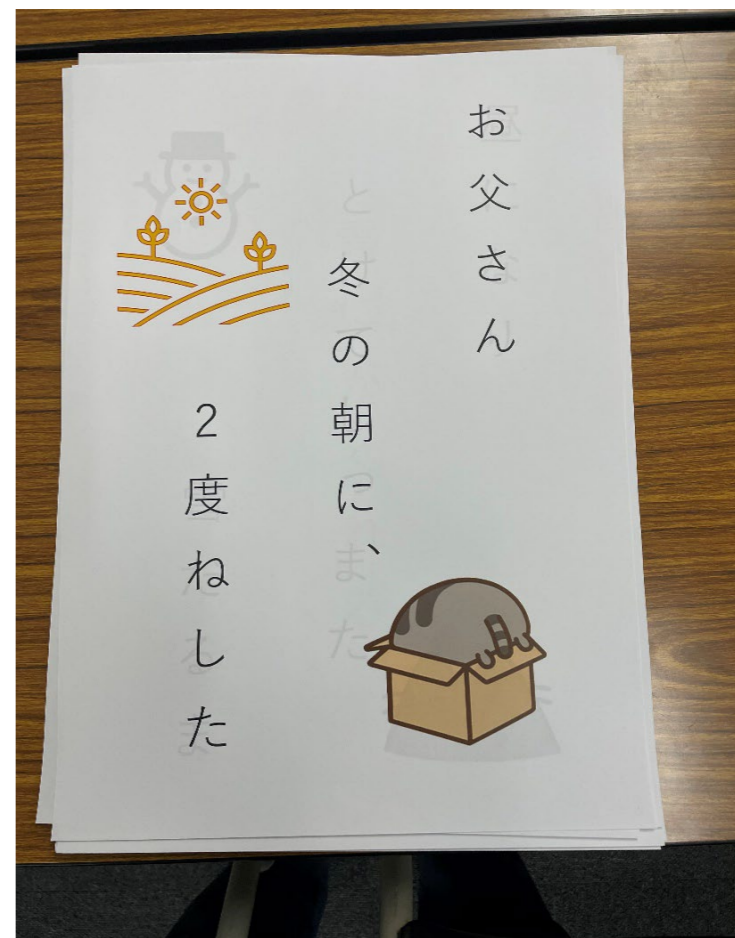 お父さん
冬の朝に、
２度ねした